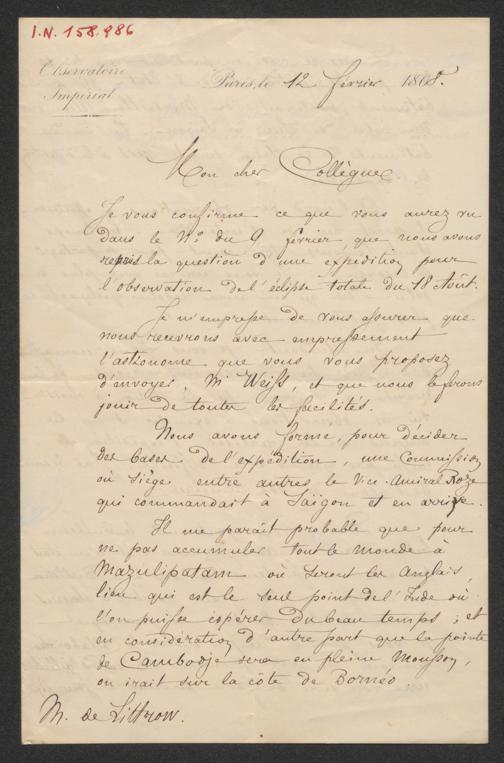 I.N. 158.986
Observatoire
Impérial
Paris, le 12 février 1868.
Mon cher Collègue
Je vous confirme ce que vous aurez vu
dans le No. du 9 février que nous avons
repris la question d'une expédition pour
l'observation de l'éclipse totale du 18 Août.
Je m'empresse de vous assurer que
nous recevrons avec empressement
l'astronome que vous vous proposez
d'envoyer, Mr Weiss, et que nous le ferons
jouir de toutes les facilités.
Nous avons formé, pour décider
des bases de l'expédition, une Commission
où siège entre autres le Vice-Amiral Roze
qui commandait à Saïgon et en arrive.
Il me paraît probable que pour
ne pas accumuler tout le monde à
Mazulipatam où seront les Anglais,
lieu qui est le seul point de l'Inde où
l'on puisse espérer du beau temps ; et
en considération d'autre part que la pointe
de Cambodje sera en pleine Mousson,
on irait sur la côte de Bornéo
M. de Littrow.